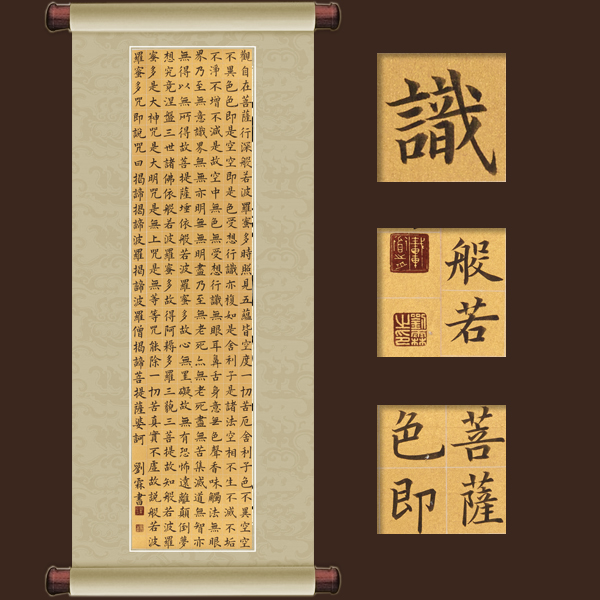 觀自在菩薩行深般若波羅蜜多時照見五蘊皆空度一切苦厄舍利子色不異空空
不異色色即是空空即是色受想行識亦復如是舍利子是諸法空相不生不滅不垢
不淨不增不減是故空中無色無受想行識無眼耳鼻舌身意無色聲香味觸法無眼
界乃至無意識界無無亦明無無明盡乃至無老死亦無老死盡無苦集滅道無智亦
無得以無所得故菩提薩埵依般若波羅蜜多故心無罣礙故無有恐怖遠離顛倒夢
想究竟涅盤三世諸佛依般若波羅蜜多故得阿耨多羅三藐三菩提故知般若波羅
蜜多是大神咒是大明咒是無上咒是無等等咒能除一切苦真實不虛故說般若波
羅蜜多咒即說咒曰揭諦揭諦波羅揭諦波羅僧揭諦菩提薩婆訶 劉霖書
識
般若
劉霖之印
菩薩
色即